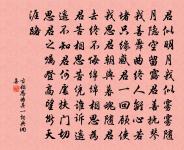 君似明月我似霧霧隨
月隱空留露君善撫琴
我善舞曲終人離心若
堵只緣感君一回顧使
我思君朝與暮魂隨君
去終不悔綿綿相思為
君苦相思苦憑誰訴遙
遙不知君何處扶門切
思君之囑登高望斷天
涯路
古相思曲其一詩典網